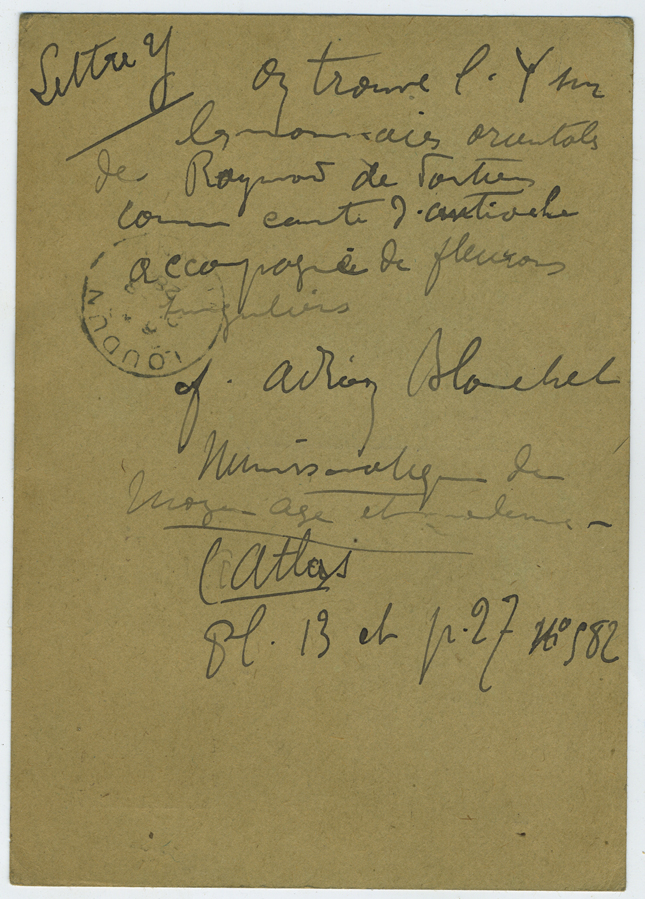 Lettre Y
on trouve l. Y sur
les monnaies orientales
de Raymond de Poitiers
comme comte d'antioche
accompagnée de fleurons
irréguliers
LOUDUN
cf. Adrien Blanchet
Numismatique du
Moyen age et moderne -
(Atlas
pl. 13 et p. 27 No 582